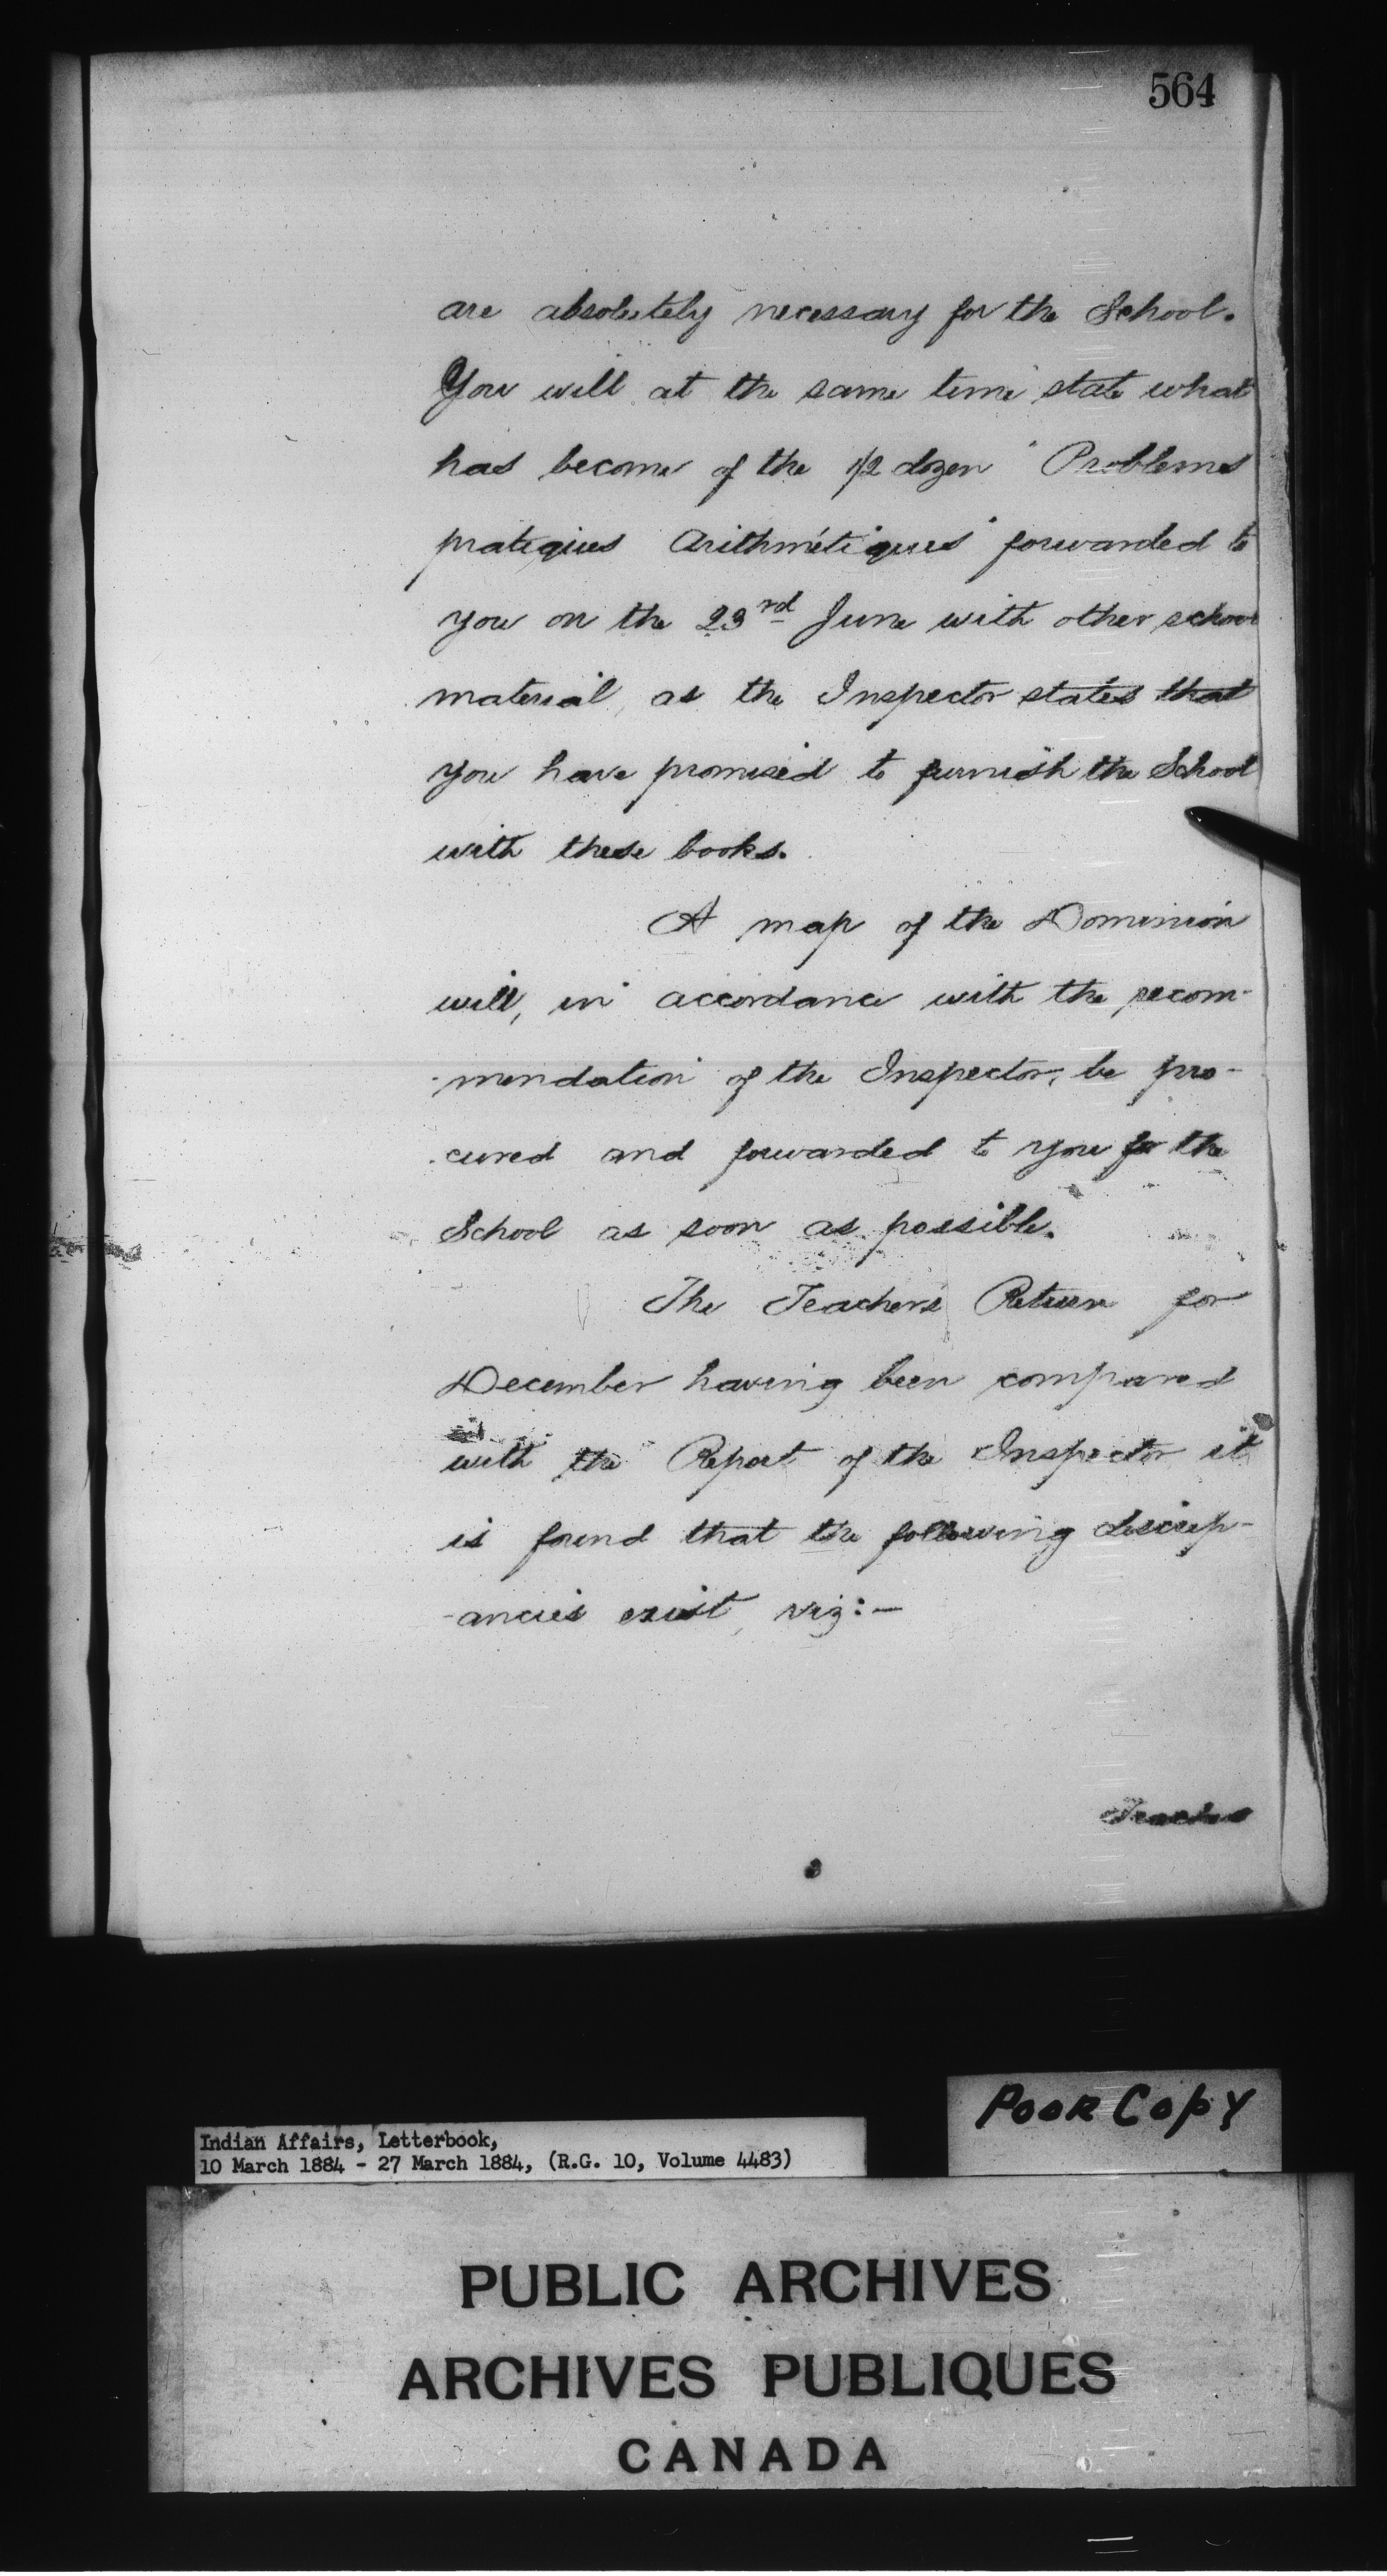 564
are absolutely necessary for the School.
You will at the same time state what
has become of the 1/2 dozen "Problemes
pratiques Arithmétiques" forwarded to
you on the 23rd June with other school
material, as the Inspector states that
you have promised to furnish the School
with these books.
A map of the Dominion
will, in accordance with the recom-
-mendation of the Inspector, be pro-
-cured and forwarded to you for the
School as soon as possible.
The Teacher's Return for
December having been compared
with the Report of the Inspector it
is found that the following discrep-
-ancies exist, viz:-
Teacher
POOR COPY
Indian Affairs, Letterbook,
10 March 1884 - 27 March 1884, (R.G. 10, Volume 4483)
PUBLIC ARCHIVES
ARCHIVES PUBLIQUES
CANADA